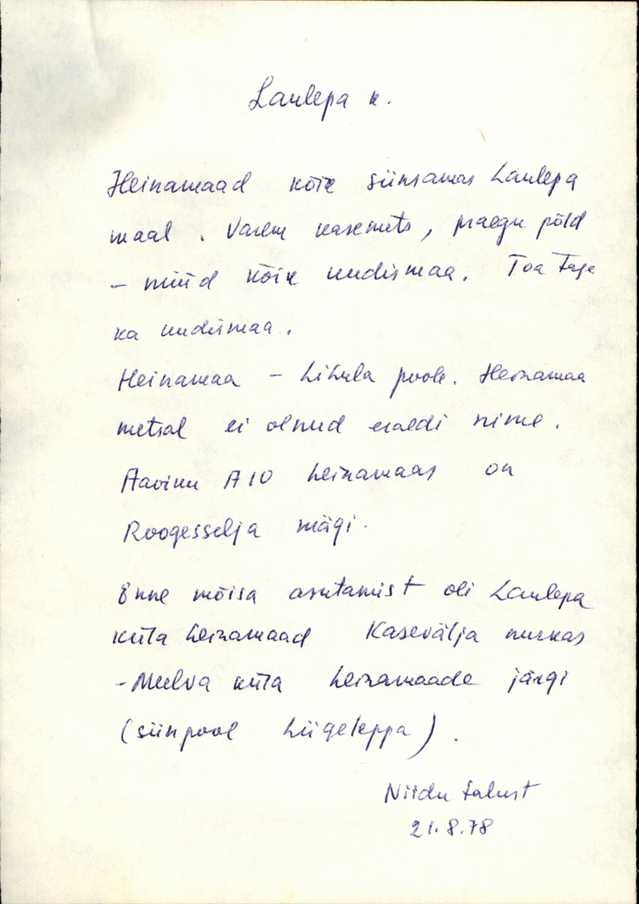 Laulepa k.
Heinamaad kõik siinsamas Laulepa
maal. Varem kasemets, praegu põld
– nüüd kõik uudismaa. Toa taga
ka uudismaa.
Heinamaa – Lihula poole. Heinamaa
metsal ei olnud eraldi nime.
Aavinu A10 heinamaas on
Roogesselja mägi.
Enne mõisa asutamist oli Laulepa
küla heinamaad Kasevälja nurkas
– Meelva küla heinamaade järgi
(siinpool Liigeleppa).
Niidu talust
21.8.78